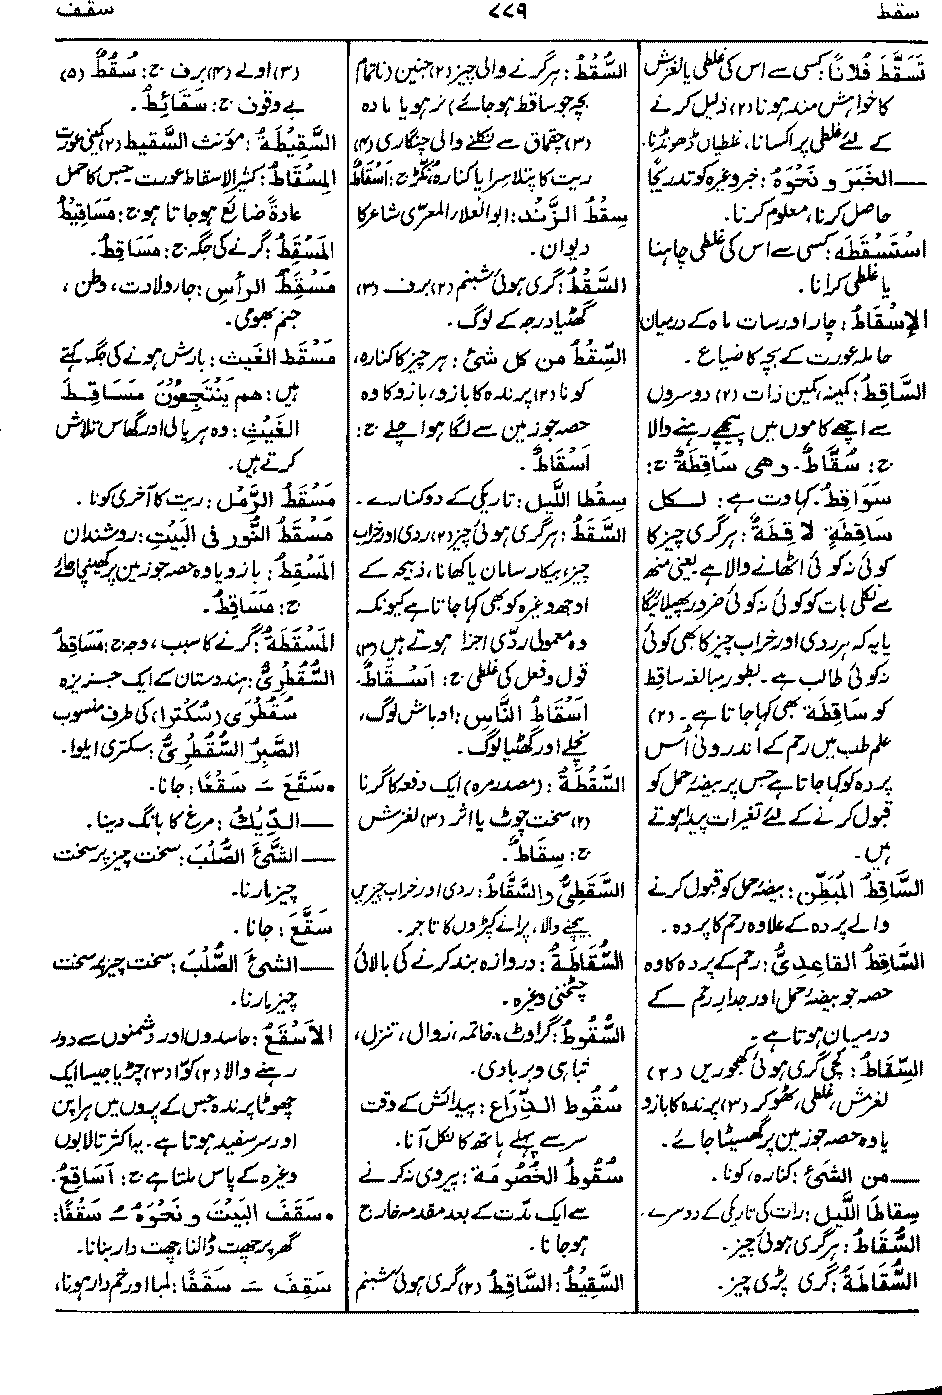 سقط
۷۷۹
سقف
تَسَقَّطَ فُلَانًا: کسی سے اس کی غلطی یا لغزش
کا خواہش مند ہونا (۲) ذلیل کرنے
کے لئے غلطی پر اکسانا، غلطیاں ڈھونڈنا۔
— الخَبَرَ و نَحْوَهٗ: خبر وغیرہ کو تدریجًا
حاصل کرنا، معلوم کرنا۔
اسْتَسْقَطَهٗ: کسی سے اس کی غلطی چاہنا
یا غلطی کرانا۔
الإسْقَاطُ: چار اور سات ماہ کے درمیان
حاملہ عورت کے بچہ کا ضیاع۔
السَّاقِطُ: کمینہ، کمین ذات (۲) دوسروں
سے اچھے کاموں میں پیچھے رہنے والا
ج: سُقَّاطٌ۔ وھی سَاقِطَةٌ ج:
سَوَاقِطُ۔ کہاوت ہے: لِـکل
سَاقِطَةٍ لَاقِطَةٌ: ہر گری چیز کا
کوئی نہ کوئی اٹھانے والا ہے یعنی منھ
سے نکلی بات کو کوئی نہ کوئی ضرور پھیلائیگا
یا یہ کہ ہر ردی اور خراب چیز کا بھی کوئی
نہ کوئی طالب ہے۔ بطور مبالغہ ساقِط
کو سَاقِطَة بھی کہا جاتا ہے۔ (۲)
علم طب میں رحم کے اندرونی اُس
پردہ کو کہا جاتا ہے جس پر بیضۂ حمل کو
قبول کرنے کے لئے تغیرات پیدا ہوتے
ہیں۔
السَّاقِطُ المُبَطِّن: بیضۂ حمل کو قبول کرنے
والے پردہ کے علاوہ رحم کا پردہ۔
السَّاقِطُ القَاعِدِیُّ: رحم کے پردہ کا وہ
حصہ جو بیضۂ حمل اور جدارِ رحم کے
درمیان ہوتا ہے۔
السِّقَاطُ: کچی گری ہوئی کھجوریں (۲)
لغزش، غلطی، ٹھوکر (۳) پرندہ کا بازو
یا وہ حصہ جو زمین پر گھسیٹا جائے۔
— من الشئ: کنارہ، کونا۔
سِقَاطَا اللَّیل: رات کی تاریکی کے دوسرے۔
السُّقَاطُ: ہر گری ہوئی چیز۔
السُّقَاطَةُ: گری پڑی چیز۔
السُّقْطُ: ہر گرنے والی چیز (۲) جنین (ناتمام
بچہ جو ساقط ہو جائے) نر ہو یا مادہ
(۳) چقماق سے نکلنے والی چنگاری (۴)
ریت کا پتلا سرا یا کنارہ، نکڑ ج: اَسْقَاطٌ
سِقْطُ الزَّنْدِ: ابوالعلاء المعرّی شاعر کا
دیوان۔
السَّقْطُ: گری ہوئی شبنم (۲) برف (۳)
گھٹیا درجہ کے لوگ۔
السِّقْطُ من کل شئ: ہر چیز کا کنارہ،
کونا (۲) پرندہ کا بازو، بازو کا وہ
حصہ جو زمین سے لگا ہوا چلے ج:
اَسْقَاطٌ۔
سِقْطَا اللَّیلِ: تاریکی کے دو کنارے۔
السَّقَطُ: ہر گری ہوئی چیز (۲) ردی اور خراب
چیز، بیکار سامان یا کھانا، ذبیحہ کے
اوجھ وغیرہ کو بھی کہا جاتا ہے کیونکہ
وہ معمولی ردّی اجزا ہوتے ہیں (۳)
قول و فعل کی غلطی ج: اَسْـقَاطٌ۔
اَسْقَاطُ النَّاسِ: اوباش لوگ،
نچلے اور گھٹیا لوگ۔
السَّقْطَةُ: (مصدر مرہ) ایک دفعہ کا گرنا
(۲) سخت چوٹ یا اثر (۳) لغزش
ج: سِقَاطٌ۔
السَّقَطِیُّ والسَّقَّاطُ: ردی اور خراب چیزیں
بیچنے والا، پرانے کپڑوں کا تاجر۔
السَّقَّاطَةُ: دروازہ بند کرنے کی بالائی
چٹخنی وغیرہ۔
السُّقُوطُ: گراوٹ، خاتمہ، زوال، تنزل،
تباہی و بربادی۔
سُقُوط الذِّرَاع: پیدائش کے وقت
سر سے پہلے ہاتھ کا نکل آنا۔
سُقُوطُ الخُصُومَة: پیروی نہ کرنے
سے ایک مدّت کے بعد مقدمہ خارج
ہو جانا۔
السَّقِیْطُ: السَّاقِطُ (۲) گری ہوئی شبنم
(۳) اولے (۴) برف ج: سُقُطٌ (۵)
بے وقوف ج: سَقَائِطُ۔
السَّقِیْطَةُ: مؤنث السَّقیط (۲) کمینی عورت
المِسْقَاطُ: کثیر الاسقاط عورت جس کا حمل
عادۃً ضائع ہو جاتا ہو ج: مَسَاقِیْطُ
المَسْقَطُ: گرنے کی جگہ ج: مَسَاقِطُ۔
مَسْقَطُ الرأسِ: جاءِ ولادت، وطن،
جنم بھومی۔
مَسْقَط الغَیث: بارش ہونے کی جگہ کہتے
ہیں: ھم یَنْتَجِعُوْنَ مَسَـاقِـطَ
الغَیْثِ: وہ ہریالی اور گھاس تلاش
کرتے ہیں۔
مَسْقَطُ الرَّمْل: ریت کا آخری کونا۔
مَسْقَطُ النُّور فی البَیْتِ: روشندان
المَسْقِطُ: بازو یا وہ حصہ جو زمین پر کھینچا جائے
ج: مَسَاقِطُ۔
المَسْقَطَةُ: گرنے کا سبب، وجہ ج: مَسَاقِطُ
السُّقُطْرِیُّ: ہندوستان کے ایک جزیرہ
سُقُطْرَی (سُکُترا) کی طرف منسوب
الصَّبْرُ السُّقُطْرِیُّ: سکتری ایلوا۔
• سَقَعَ ـَ سَقْعًا: جانا۔
— الدِّیْكُ: مرغ کا بانگ دینا۔
— الشَّیْءَ الصُّلْبَ: سخت چیز پر سخت
چیز مارنا۔
سَقَّعَ: جانا۔
— الشئَ الصُّلْبَ: سخت چیز پر سخت
چیز مارنا۔
الأَسْقَعُ: حاسدوں اور دشمنوں سے دور
رہنے والا (۲) کوّا (۳) چڑیا جیسا ایک
چھوٹا پرندہ جس کے پروں میں ہرا پن
اور سر سفید ہوتا ہے۔ یہ اکثر تالابوں
وغیرہ کے پاس ملتا ہے ج: اَسَاقِعُ۔
• سَقَفَ البَیْتَ و نَحْوَهٗ ـُ سَقْفًا:
گھر پر چھت ڈالنا، چھت دار بنانا۔
سَقِفَ ـَ سَقَفًا: لمبا اور خم دار ہونا،